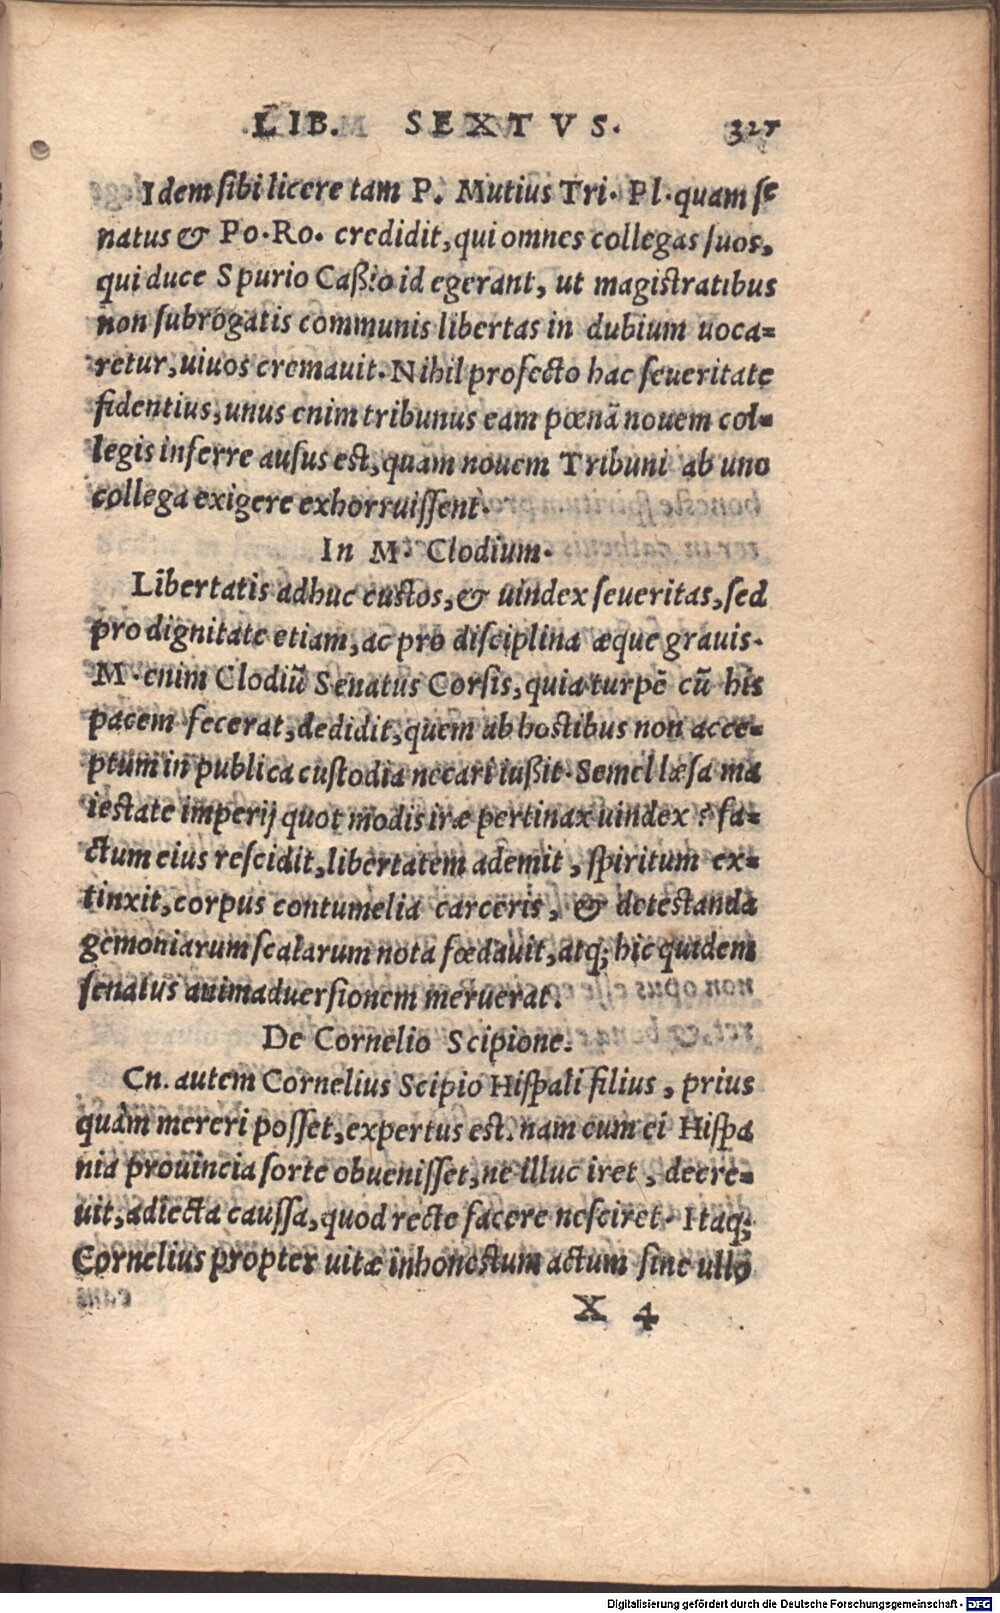 LIB. SEXTVS. 327
Idem sibi licere tam P. Mutius Tri. Pl. quam se
natus & Po. Ro. credidit, qui omnes collegas suos,
qui duce Spurio Caßio id egerant, ut magistratibus
non subrogatis communis libertas in dubium uoca=
retur, uiuos cremauit. Nihil profecto hac seueritate
fidentius, unus enim tribunus eam pœnã nouem col=
legis inferre ausus est, quam nouem Tribuni ab uno
collega exigere exhorruissent.
In M. Clodium.
Libertatis adhuc custos, & uindex seueritas, sed
pro dignitate etiam, ac pro disciplina æque grauis.
M. enim Clodiũ Senatus Corsis, quia turpẽ cũ his
pacem fecerat, dedidit, quem ab hostibus non acce=
ptum in publica custodia necari iußit. Semel læsa ma
iestate imperij quot modis iræ pertinax uindex? fa=
ctum eius rescidit, libertatem ademit, spiritum ex=
tinxit, corpus contumelia carceris, & detestanda
gemoniarum scalarum nota fœdauit, atq; hic quidem
senatus animaduersionem meruerat.
De Cornelio Scipione.
Cn. autem Cornelius Scipio Hispali filius, prius
quàm mereri posset, expertus est. nam cum ei Hispa
nia prouincia sorte obuenisset, ne illuc iret, decre=
uit, adiecta caussa, quod recte facere nesciret. Itaq;
Cornelius propter uitæ inhonestum actum sine ullo
X 4
Digitalisierung gefördert durch die Deutsche Forschungsgemeinschaft - DFG